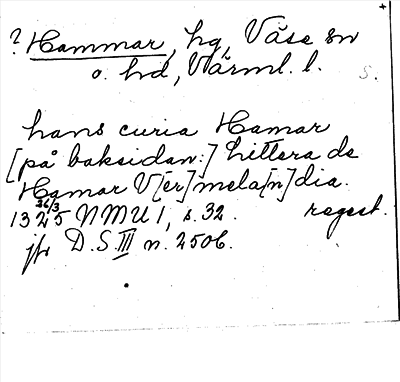 ? Hammar, hg, Väse sn
o. hd, Värml. l.
s.
hans curia Hamar
[på baksidan:] littera de
Hamar V[er]mela[n]dia.
26/3
1325 NMU 1, s. 32. regest.
jfr D.S. III n. 2506.